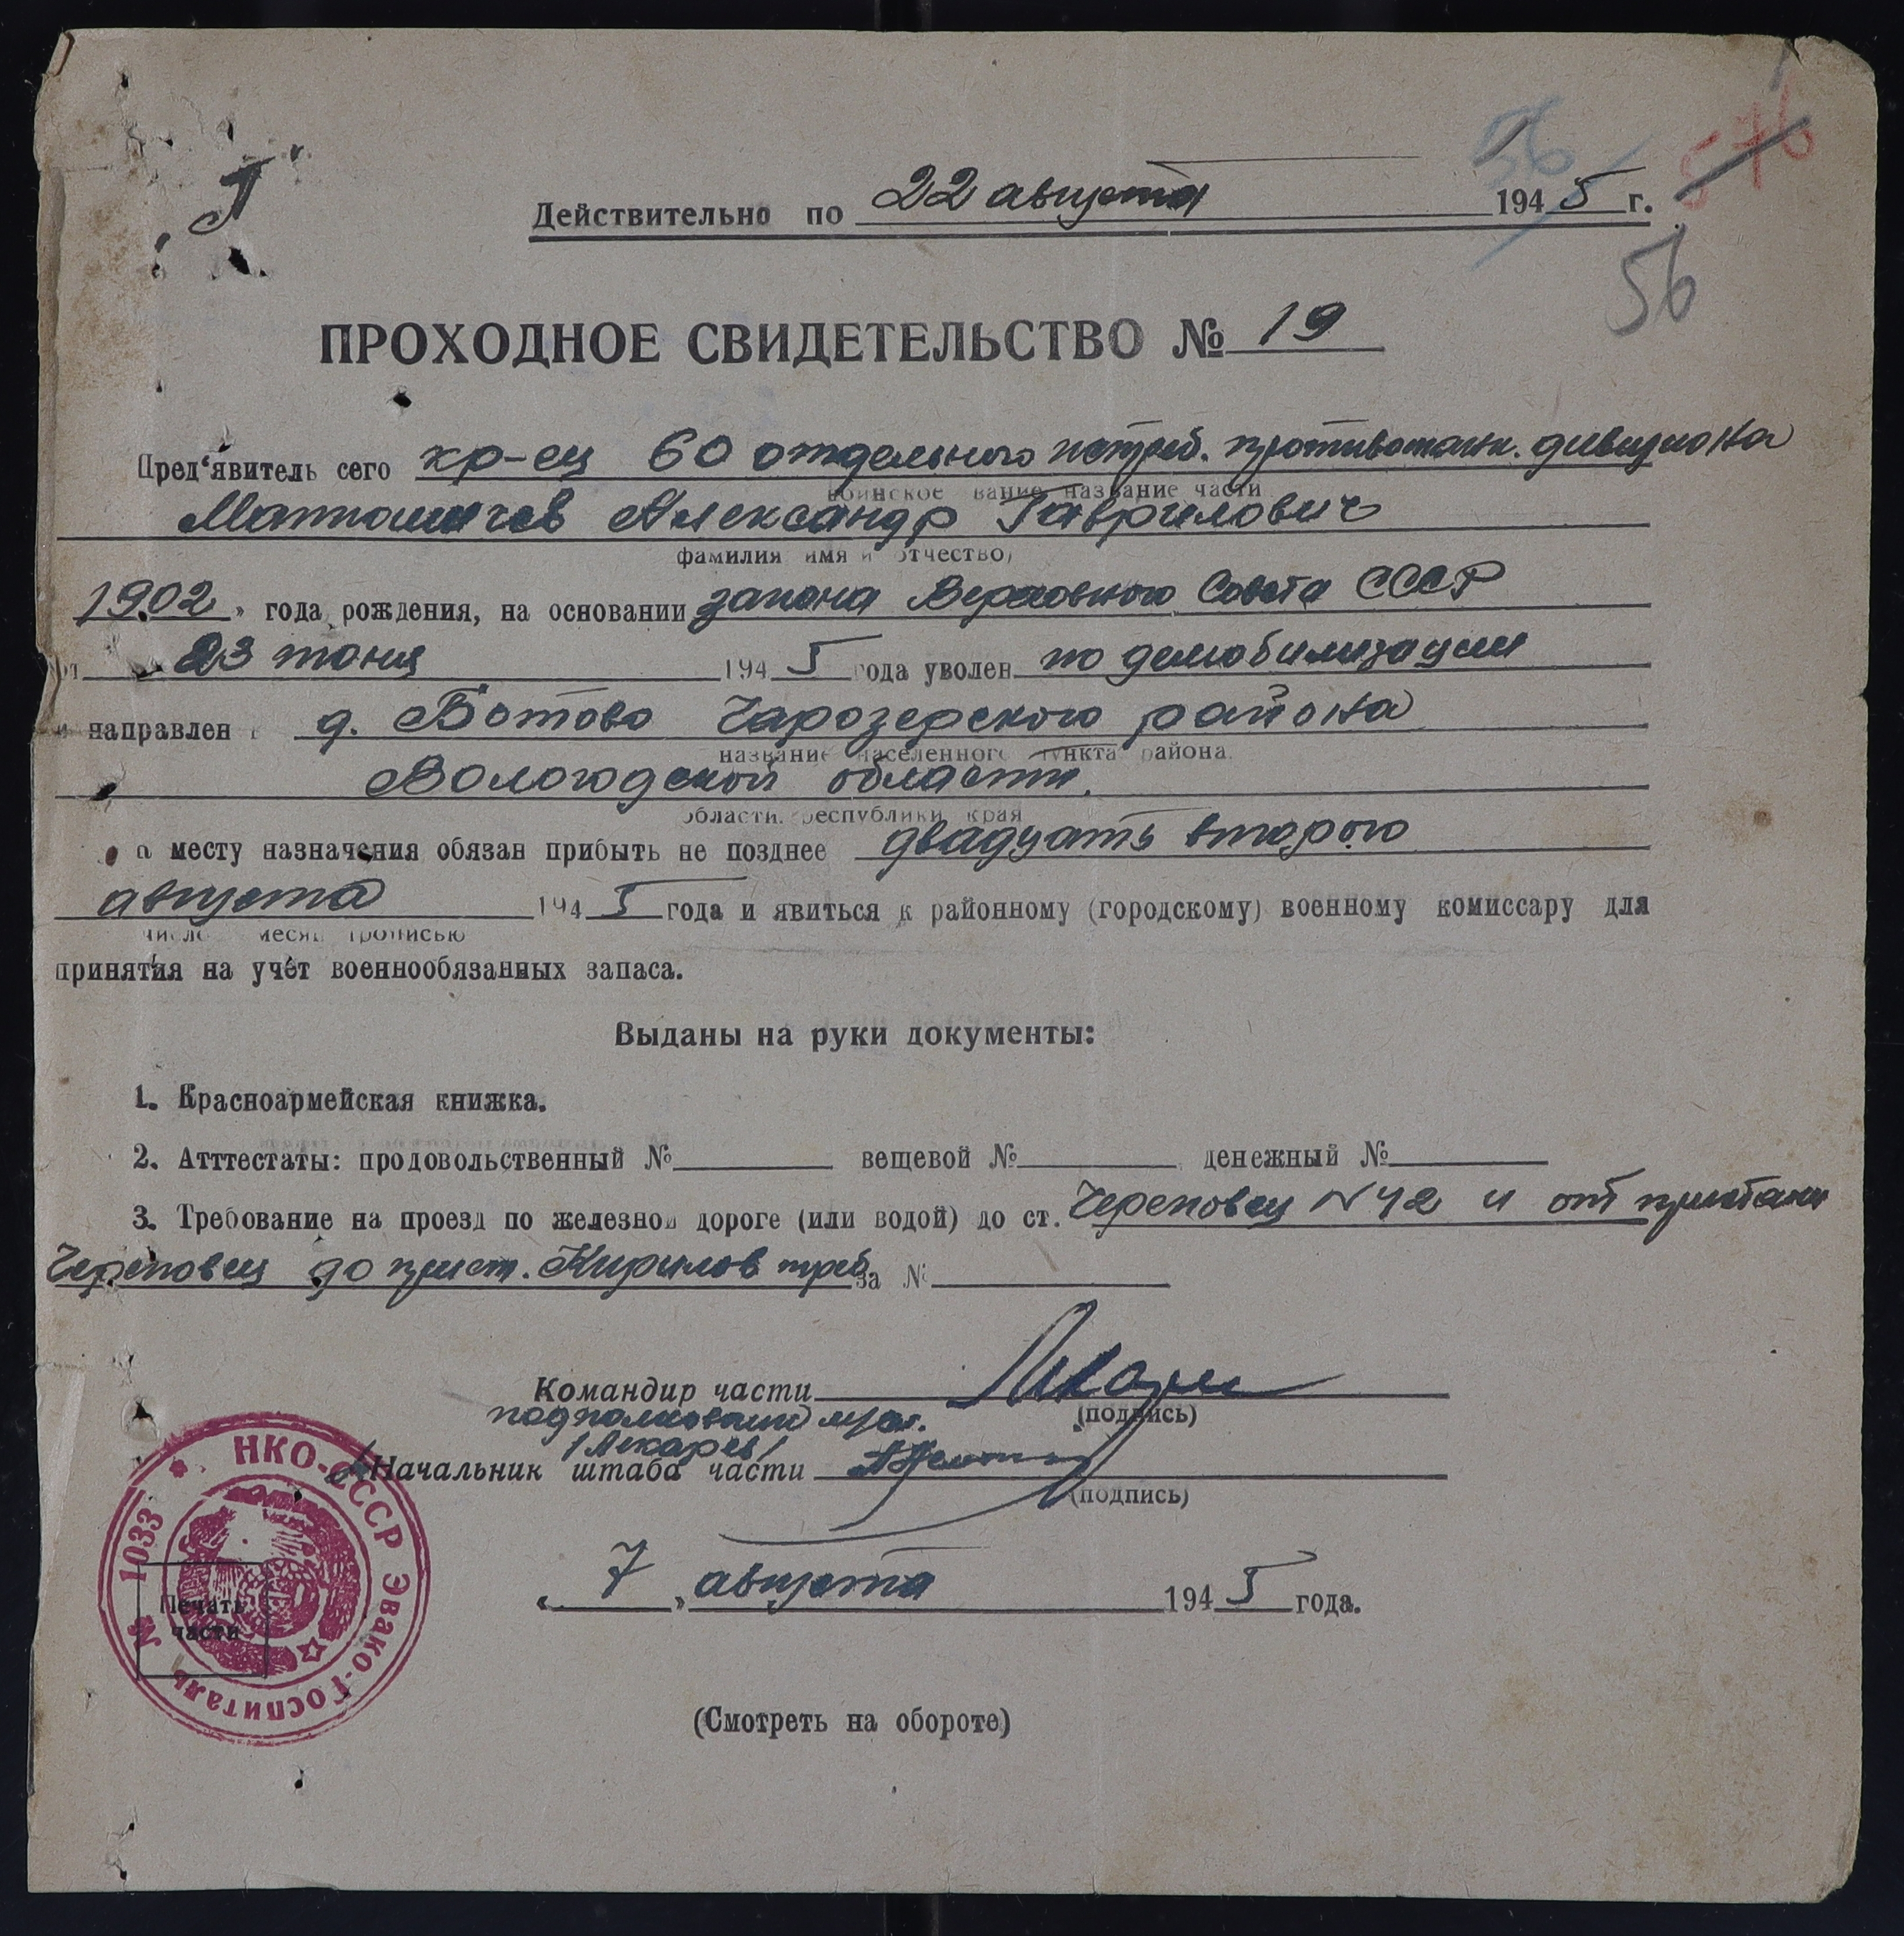 56
576
56
Действительно по 22 августа 1945 г.
ПРОХОДНОЕ СВИДЕТЕЛЬСТВО № 19
Пред‘явитель сего кр-ец 60 отдельного истреб. противотанк. дивизиона
воинское звание название части
Матюшичев Александр Гаврилович
фамилия имя и отчество)
1902 , года рождения, на основании закона Верховного Совета СССР
от 23 июня 1945 года уволен по демобилизации
и направлен в д. Ботово Чарозерского района
название населенного пункта района
Вологодской области.
области. республики края
а месту назначения обязан прибыть не позднее двадцать второго
августа 1945 года и явиться к районному (городскому) военному комиссару для
число месяц прописью
принятия на учёт военнообязанных запаса.
Выданы на руки документы:
1. Красноармейская книжка.
2. Атттестаты: продовольственный № вещевой № денежный №
3. Требование на проезд по железной дороге (или водой) до ст. Череповец N 42 и от пристани
Череповец до прист. Кирилов треб. за №
Командир части
(подпись)
подполковник м/сл.
/Лекарев/
Начальник штаба части
(подпись)
НКО-СССР ЭВАКО-ГОСПИТАЛЬ № 1033
Печать
части
„ 7 „ августа 1945 года.
(Смотреть на обороте)